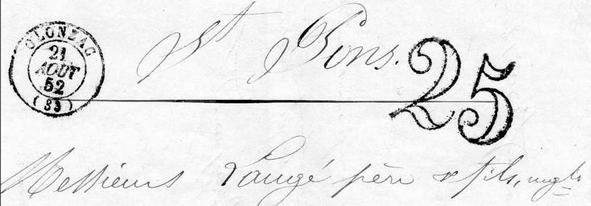 OLONZAC
21
AOUT
52
(33)
St Pons.
25
Messieurs Laugé père & fils, négts